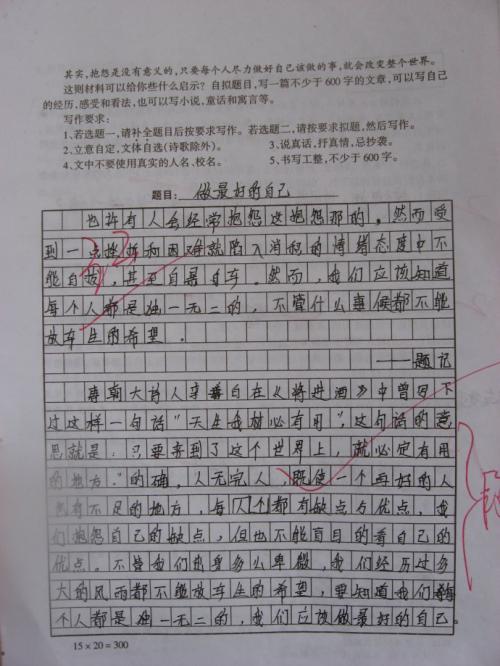 其实,抱怨是没有意义的,只要每个人尽力做好自己该做的事,就会改变整个世界。
这则材料可以给你些什么启示?自拟题目,写一篇不少于600字的文章,可以写自己
的经历,感受和看法,也可以写小说,童话和寓言等。
写作要求:
1、若选题一,请补全题目后按要求写作。若选题二,请按要求拟题,然后写作。
2、立意自定,文体自选(诗歌除外)。 3、说真话,抒真情,忌抄袭。
4、文中不要使用真实的人名、校名。 5、书写工整,不少于600字。
题目: 做最好的自己
也许有人会经常抱怨这抱怨那的。然而受
到一点挫折和困难就陷入消积的情绪态度中不
能自拔,甚至自暴自弃。然而,我们应该知道
每个人都是独一无二的,不管什么事候都不能
放弃生的希望。
——题记
唐朝大诗人李白在《将进酒》中曾写下
过这样一句话"天生我材必有用",这句话的意
思就是:只要来到了这个世界上,就必定有用
的地方。"的确,人无完人,既使一个再好的人
都有不足的地方,每个都有缺点与优点,我
们抱怨自己的缺点,但也不能盲目的看自己的
优点。不管我们出身多么卑微,我们经历过多
大的风雨都不能放弃生的希望,要知道我们每
个人都是独一无二的,我们应该做最好的自己。
15×20=300